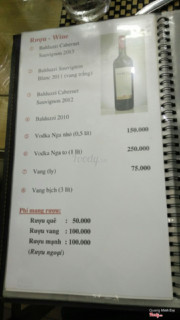 Rượu - Wine
Balduzzi Cabernet
Sauvignon 2013
Balduzzi Sauvignon
Blanc 2011 (vang trắng)
Balduzzi Cabernet
Sauvignon 2012
Balduzzi 2010
Vodka Nga nhỏ (0,5 lít) 150.000
Vodka Nga to (1 lít) 250.000
Vang (ly) 75.000
Vang bịch (3 lít)
Phí mang rượu:
Rượu quê : 50.000
Rượu vang : 100.000
Rượu mạnh : 100.000
(Rượu ngoại)